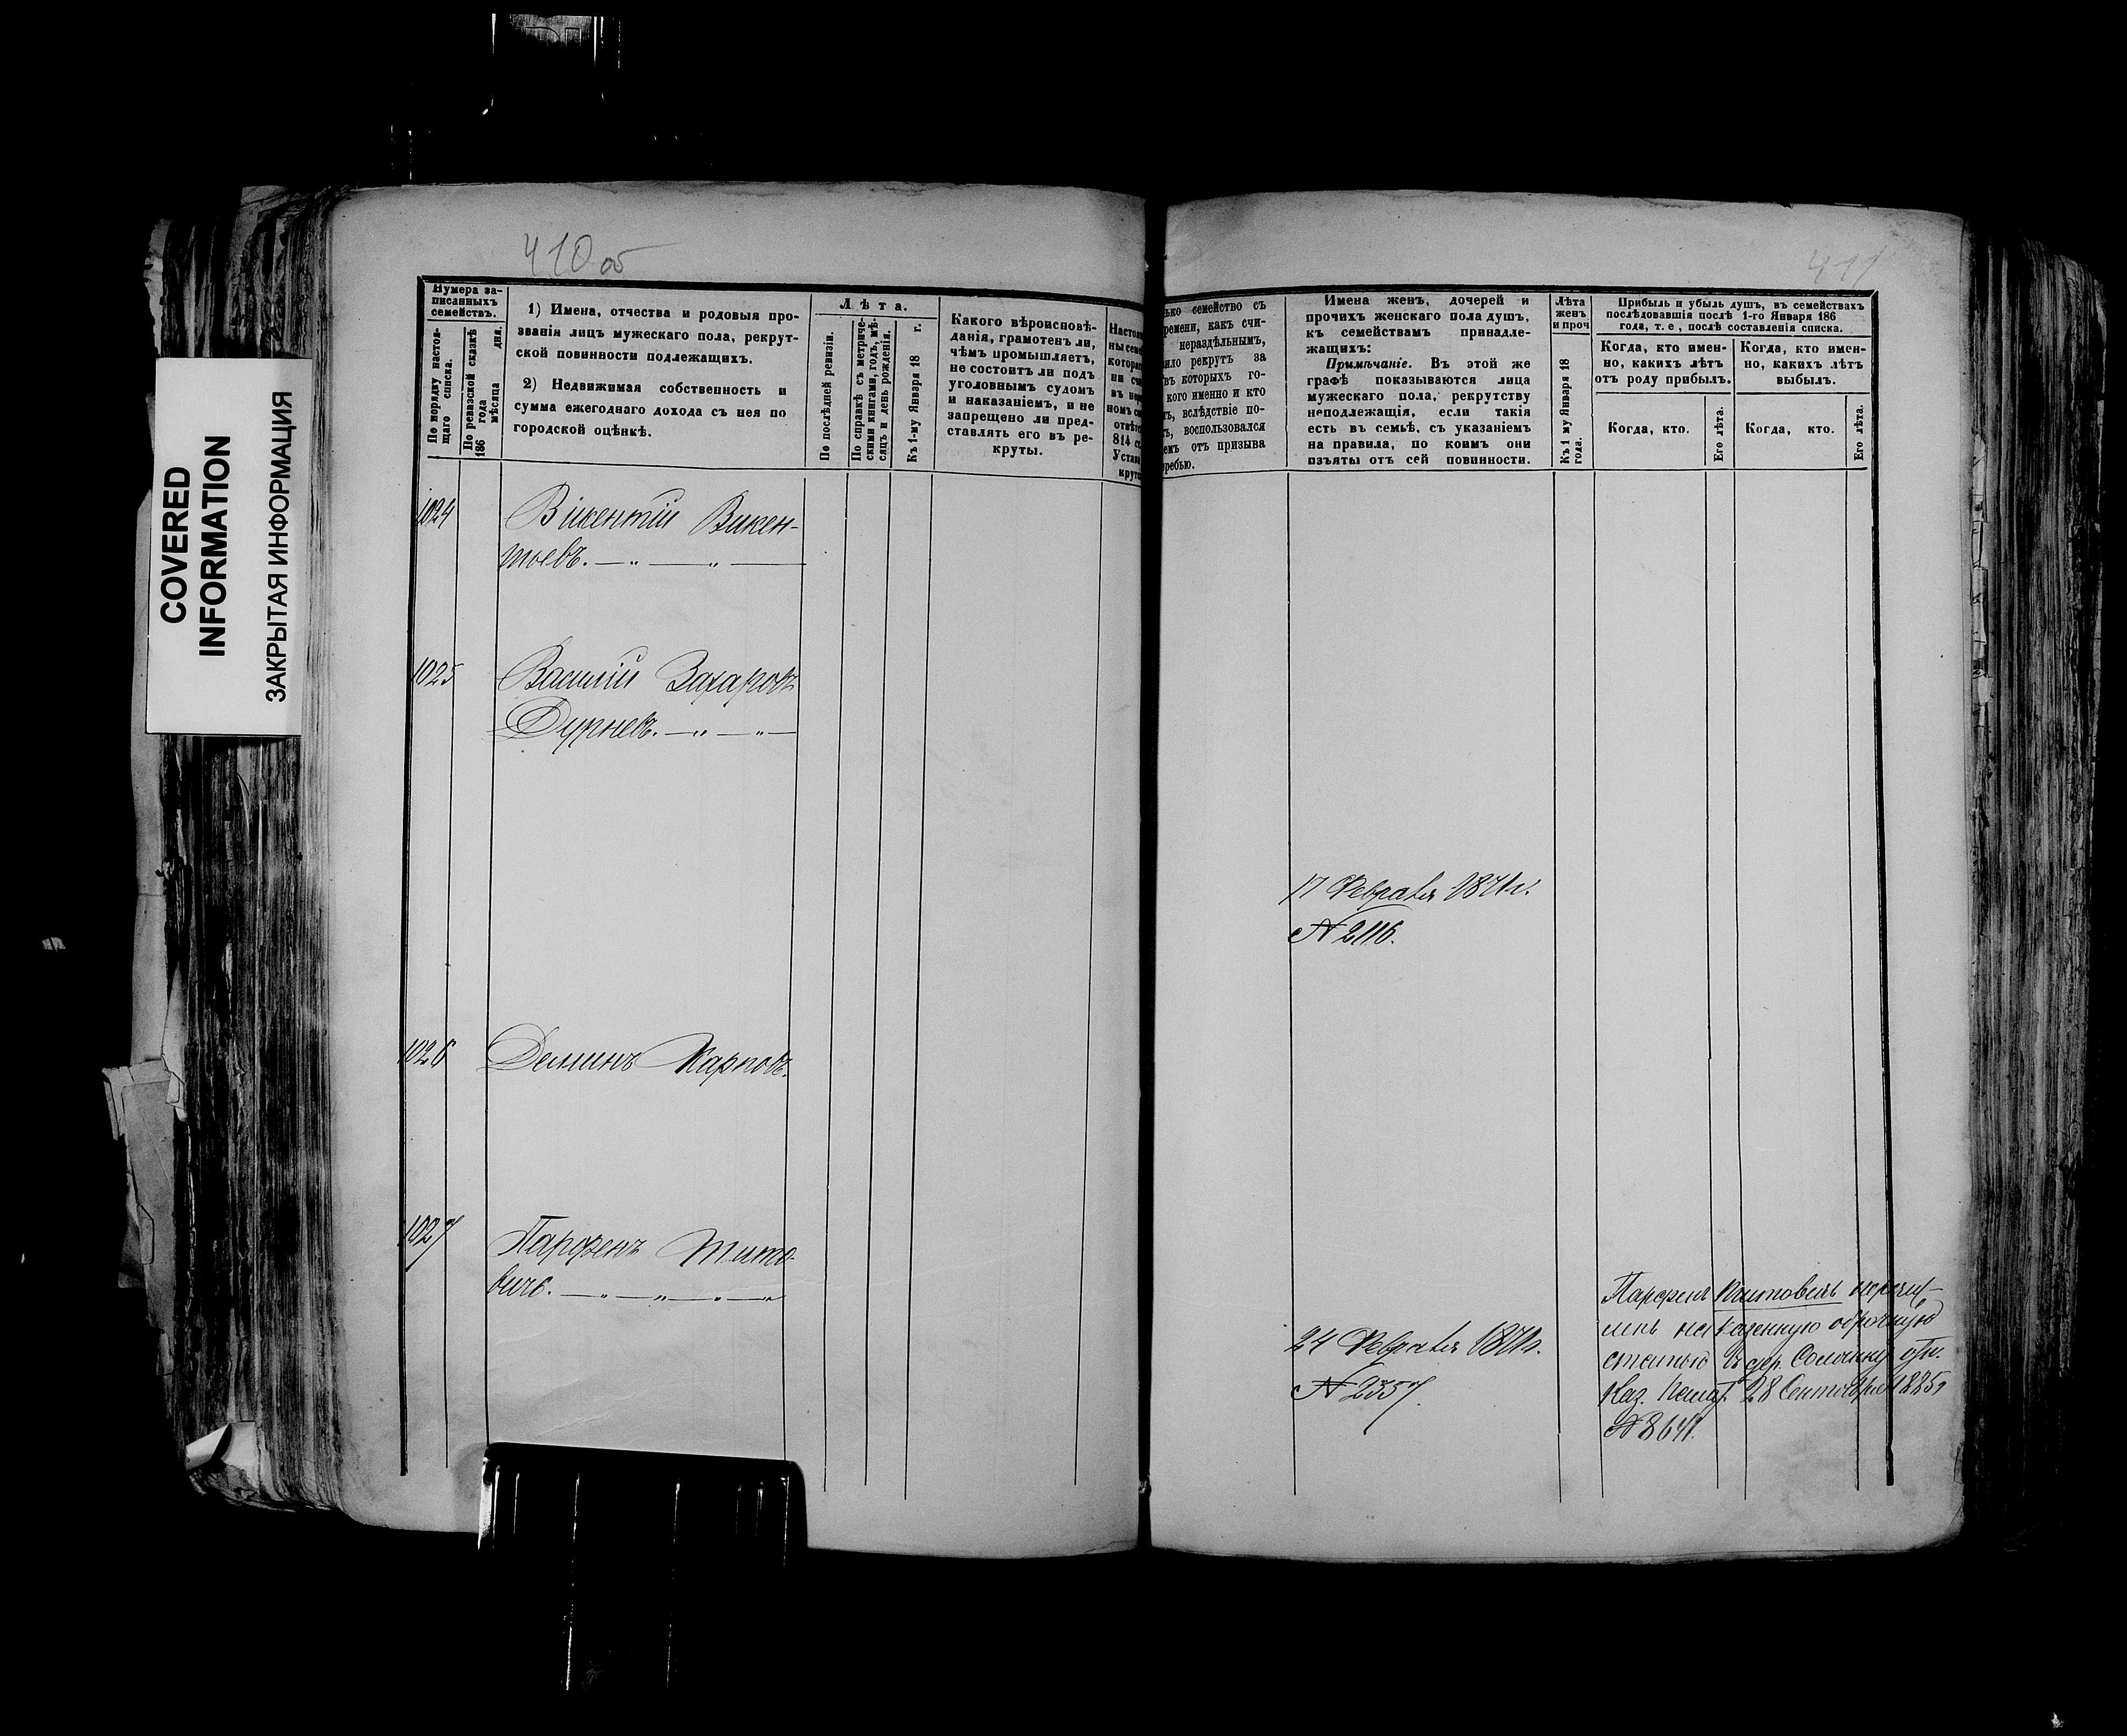 COVERED
INFORMATION
ЗАКРЫТАЯ ИНФОРМАЦИЯ
410 об
411
Нумера за-
писанныхъ
семействъ.
По порядку настоя-
щаго списка.
По ревизской сказкѣ
186 года
мѣсяца дня.
1) Имена, отчества и родовыя про-
званія лицъ мужескаго пола, рекрут-
ской повинности подлежащихъ.
2) Недвижимая собственность и
сумма ежегоднаго дохода съ нея по
городской оцѣнкѣ.
Лѣта.
По послѣдней ревизіи.
По справкѣ съ метриче-
скими книгами, годъ, мѣ-
сяцъ и день рожденія.
Къ 1-му Января 18 г.
Какого вѣроисповѣ-
данія, грамотенъ ли,
чѣмъ промышляетъ,
не состоитъ ли подъ
уголовнымъ судомъ
и наказаніемъ, и не
запрещено ли пред-
ставлять его въ ре-
круты.
Настоя
ны семе
котора
ни сч
въ
номъ
отвѣт
814 с
Уста
крут
ько семейство съ
ремени, какъ счи-
нераздѣльнымъ,
ило рекрутъ за
въ которыхъ го-
кого именно и кто
ъ, вслѣдствіе по-
ъ, воспользовался
емъ отъ призыва
ребью.
Имена женъ, дочерей и
прочихъ женскаго пола душъ,
къ семействамъ принадле-
жащихъ:
Примѣчаніе. Въ этой же
графѣ показываются лица
мужескаго пола, рекрутству
неподлежащія, если такія
есть въ семьѣ, съ указаніемъ
на правила, по коимъ они
изъяты отъ сей повинности.
Лѣта
женъ
и проч
Къ 1 му Января 18
года.
Прибыль и убыль душъ, въ семействахъ
послѣдовавшія послѣ 1-го Января 186
года, т. е , послѣ составленія списка.
Когда, кто имен-
но, какихъ лѣтъ
отъ роду прибылъ.
Когда, кто.
Его лѣта.
Когда, кто имен-
но, какихъ лѣтъ
выбылъ.
Когда, кто.
Его лѣта.
1024 Викентій Викен-
тьевъ.
1025 Василій Захаровъ
Дурневъ.
17 Февраля 1871 г.
№ 2116.
1026 Деминъ Карповъ.
1027 Парфенъ Тито-
вичъ.
24 Февраля 1871 г.
№ 2357.
Парфенъ
на казенную оброчную
дер.
Каз. Палат. 28 Сентября 1885
№ 8641.